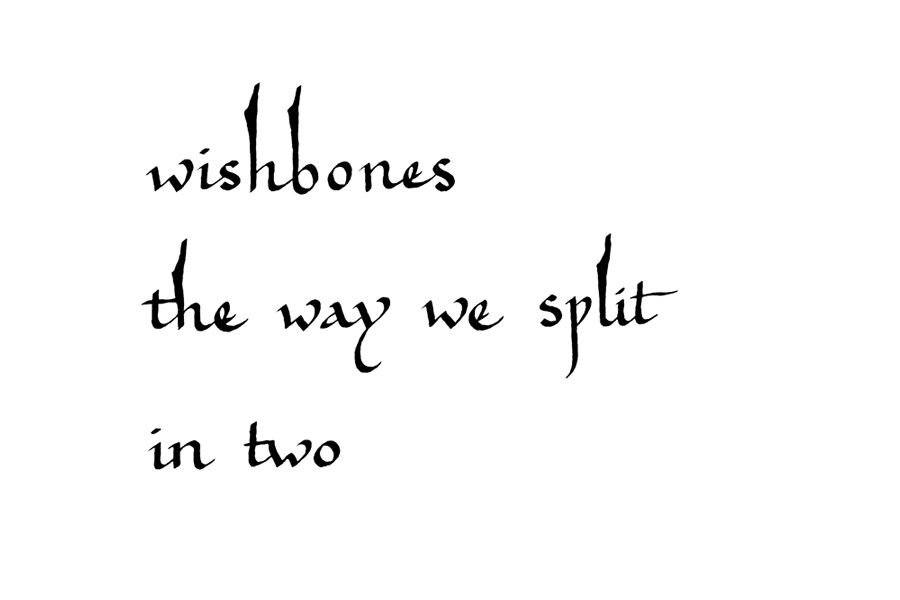 wishbones
the way we split
in two